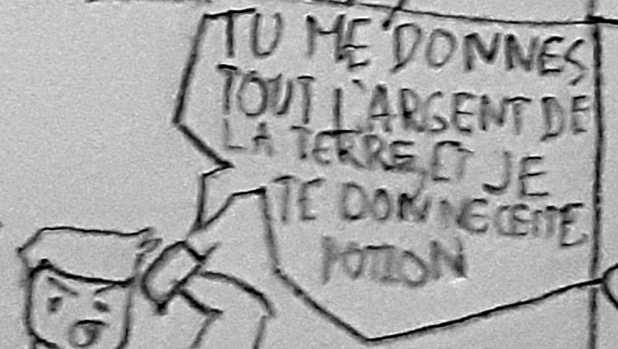 TU ME DONNES
TOUT L'ARGENT DE
LA TERRE, ET JE
TE DONNE CETTE
POTION